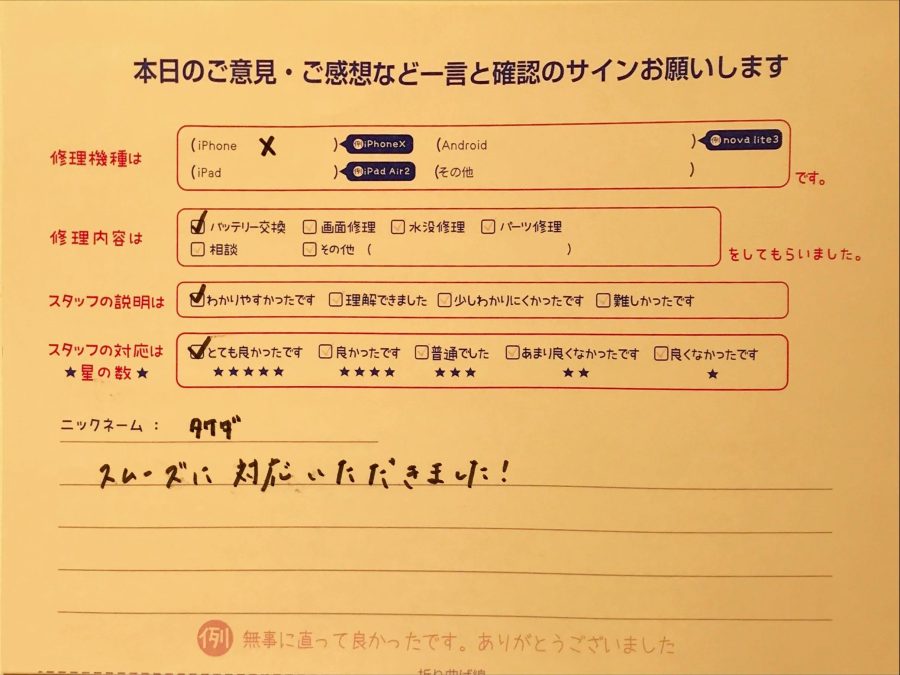 本日のご意見・ご感想など一言と確認のサインお願いします
修理機種は (iPhone X ) 例iPhoneX (Android ) 例nova lite3
(iPad ) 例iPad Air2 (その他 ) です。
修理内容は バッテリー交換 画面修理 水没修理 パーツ修理
相談 その他 ( ) をしてもらいました。
スタッフの説明は わかりやすかったです 理解できました 少しわかりにくかったです 難しかったです
スタッフの対応は とても良かったです 良かったです 普通でした あまり良くなかったです 良くなかったです
★星の数★ ★★★★★ ★★★★ ★★★ ★★ ★
ニックネーム： タケダ
スムーズに対応いただきました！
例 無事に直って良かったです。ありがとうございました